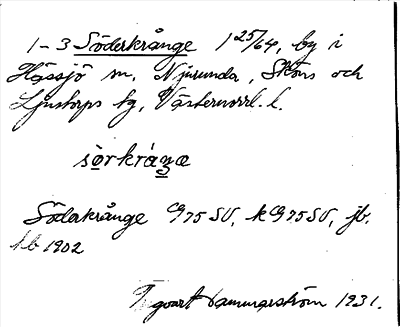 1-3 Söderkrånge 1 25/64, by i
Hässjö m. Njurunda, Sköns och
Ljustorps tg, Västernorrl. l.
sörkråŋæ
Söderkrånge G75 SV, k G75 SV, jb.
1902
Hammarström 1931.